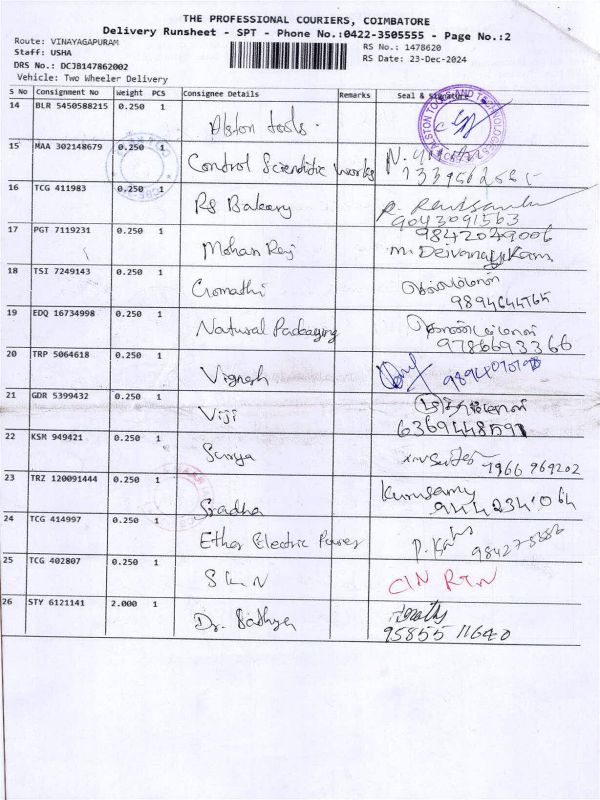 THE PROFESSIONAL COURIERS, COIMBATORE
Delivery Runsheet - SPT - Phone No.:0422-3505555 - Page No.:2
Route: VINAYAGAPURAM RS No.: 1478620
Staff: USHA RS Date: 23-Dec-2024
DRS No.: DCJB147862002
Vehicle: Two Wheeler Delivery
S No Consignment No/No Weight PCS Consignee Details Remarks Seal & Signature
14 BLR 5450588215 0.250 1 Alston tools.
15 MAA 302148679 0.250 1 Control Scientific Works
16 TCG 411983 0.250 1 RS Bakery
9043091563
17 PGT 7119231 0.250 1 Mohan Raj 9842049006
18 TSI 7249143 0.250 1 Gomathi
9894644765
19 EDQ 16734998 0.250 1 Natural Packaging
9786693366
20 TRP 5064618 0.250 1 Vignesh
21 GDR 5399432 0.250 1 Viji
6369448591
22 KSM 949421 0.250 1 Surya 7966 969202
23 TRZ 120091444 0.250 1 Sradha Kurusamy
24 TCG 414997 0.250 1 Ether Electric Power
25 TCG 402807 0.250 1 S K N
26 STY 6121141 2.000 1 Dr. Sathya
95855 11640